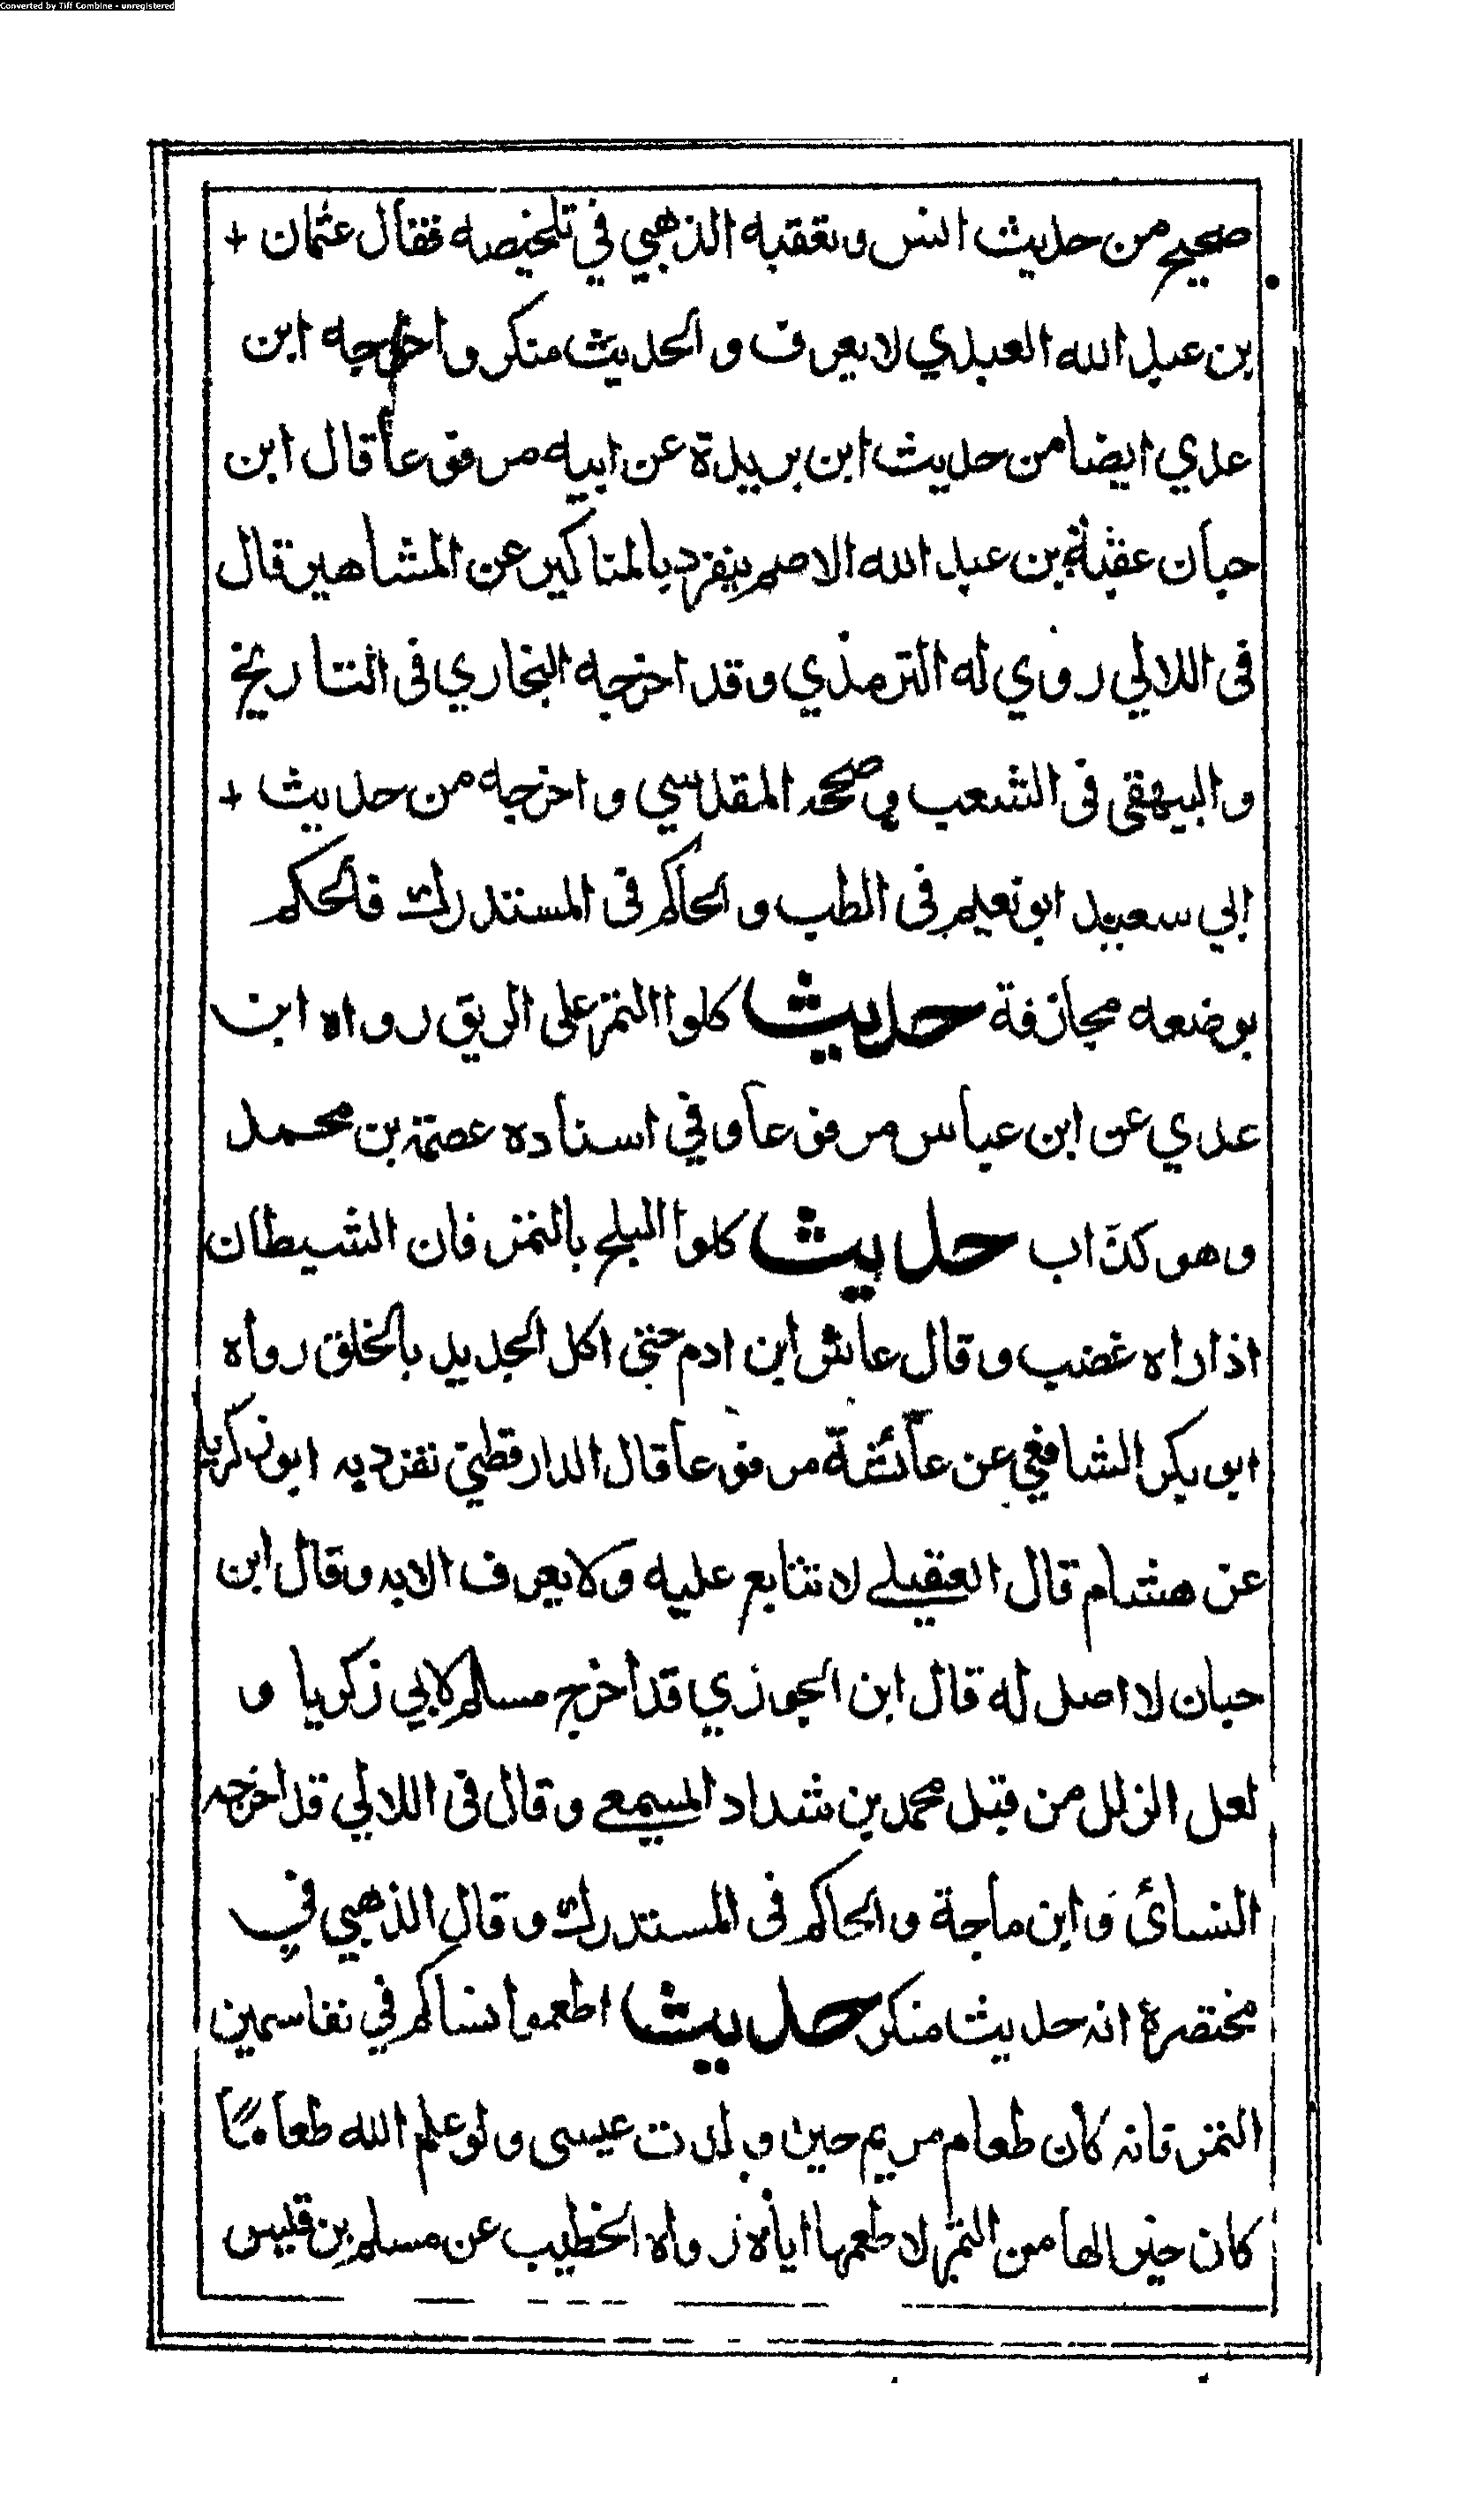 Converted by Tiff Combine - unregistered
صحيح من حديث انس وتعقبه الذهبي في تلخيصه فقال عثمان +
بن عبد الله العبدي لا يعرف والحديث منكر واخرجه ابن
عدي ايضا من حديث ابن بريدة عن ابيه مرفوعا قال ابن
حبان عقبة بن عبد الله الاصم ينفرد بالمناكير عن المشاهير قال
فى اللالي روي له الترمذي وقد اخرجه البخاري فى التاريخ
والبيهقى فى الشعب وصححه المقدسي واخرجه من حديث +
ابي سعيد ابو نعيم فى الطب والحاكم فى المستدرك فالحكم
بوضعه مجازفة حديث كلوا التمر على الريق رواه ابن
عدي عن ابن عباس مرفوعا وفي اسناده عصمة بن محمد
وهو كذّاب حديث كلوا البلح بالتمر فان الشيطان
اذا راه غضب وقال عاش ابن ادم حتى اكل الجديد بالخلق رواه
ابو بكر الشافعي عن عائشة مرفوعا قال الدارقطني تفرد به ابو زكريا
عن هشام قال العقيلے لا يتابع عليه ولا يعرف الا به وقال ابن
حبان لا اصل له قال ابن الجوزي قد اخرج مسلم لابي زكريا و
لعل الزلل من قبل محمد بن شداد المسمعے وقال فى اللالي قد اخرجه
النسائ وابن ماجة والحاكم فى المستدرك وقال الذهبي في
مختصرة انه حديث منكر حديث اطعموا نساكم في نفاسهين
التمر فانه كان طعام مريم حين ولدت عيسى ولو علم الله طعامًا
كان خير الها من التمر لا طعمها اياه رواه الخطيب عن مسلم بن قيس